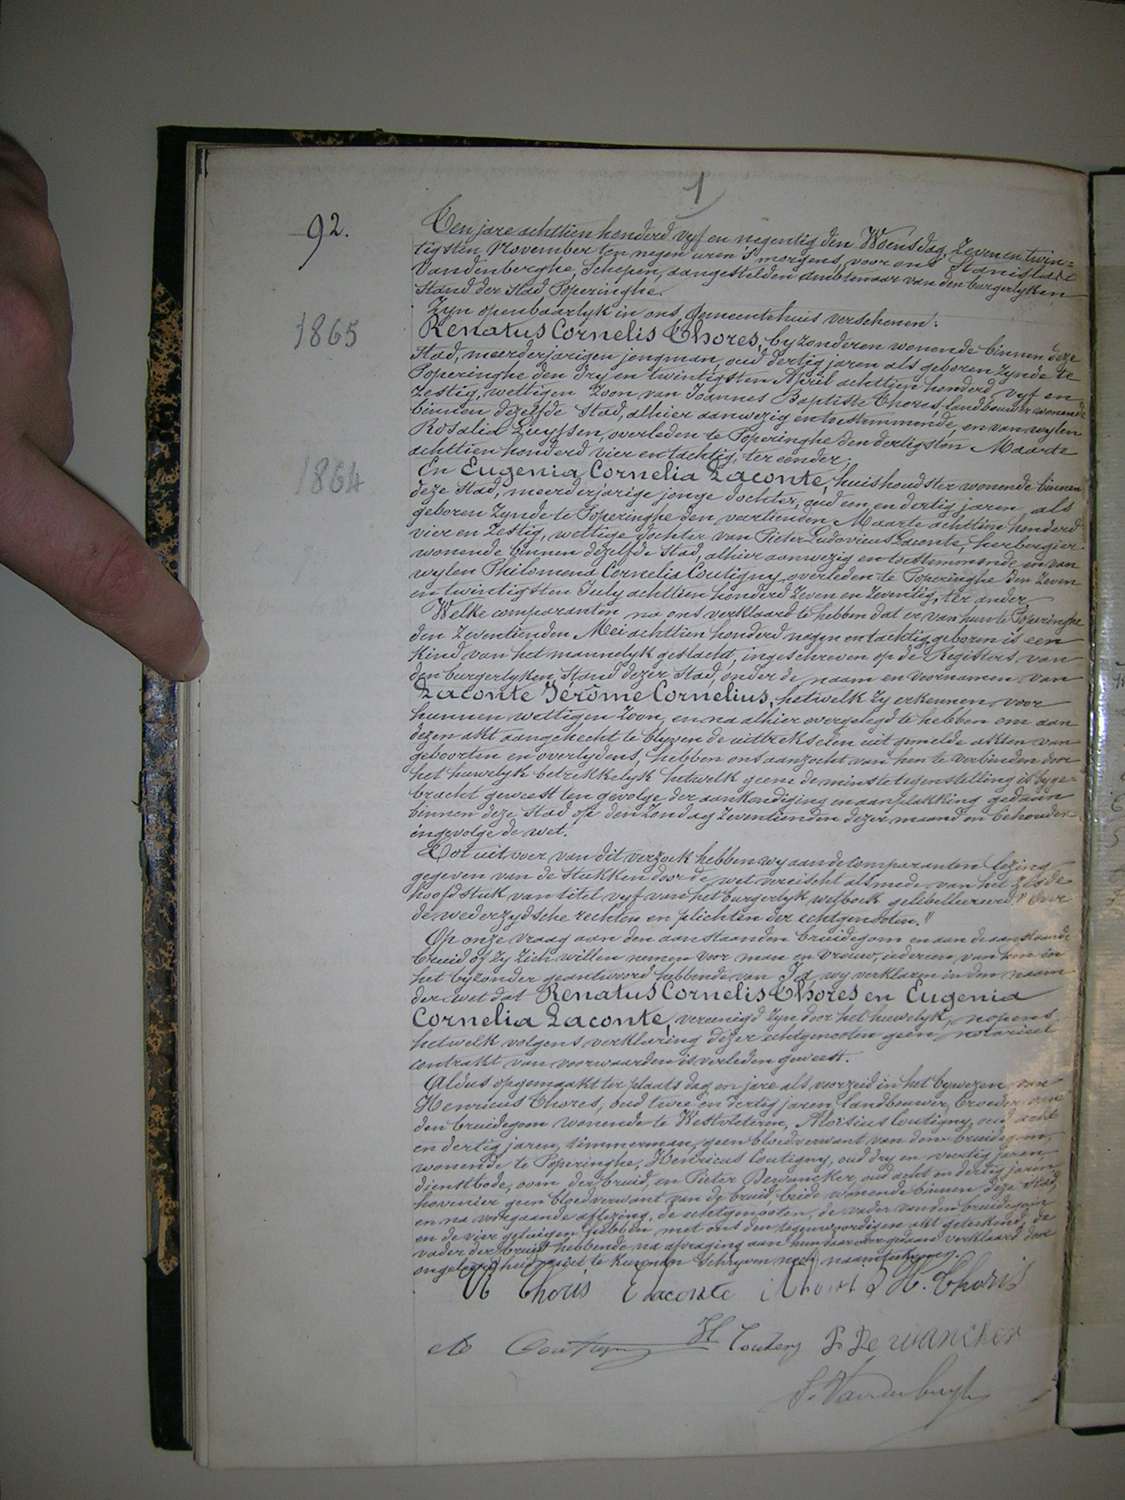 1
92.
Ten jare achttien honderd vyf en negentig den Woensdag, Zeven en twin=
tigsten November ten negen uren 's morgens, voor ons Stanislas
Vandenberghe, Schepen, aangestelden ambtenaar van den burgerlyken
Stand der Stad Poperinghe.
Zyn openbaarlyk in ons Gemeentehuis verschenen:
1865
Renatus Cornelis Thores, byzonderen wonende binnen deze
Stad, meerderjarigen jongman, oud dertig jaren als geboren zynde te
Poperinghe den dry en twintigsten April achttien honderd vyf en
Zestig, wettigen Zoon van Joannes Baptiste Thores, landbouwer wonende
binnen dezelfde Stad, alhier aanwezig en toestemmende, en van wylen
Rosalia Luyssen, overleden te Poperinghe den dertigsten Maarte
achttien honderd vier en tachtig, ter eender;
1864
En Eugenia Cornelia Laconte, huishoudster wonende binnen
deze Stad, meerderjarige jonge dochter, oud een en dertig jaren als
geboren Zynde te Poperinghe den veertiensten Maarte achttien honderd
vier en Zestig, wettige dochter van Pieter Ludovicus Laconte, herbergier
wonende binnen dezelfde Stad, alhier aanwezig en toestemmende en van
wylen Philomena Cornelia Coutigny, overleden te Poperinghe den Zeven
en twintigsten July achttien honderd Zeven en Zeventig, ter ander.
Welke comparanten na ons verklaard te hebben dat er van hun te Poperinghe
den Zeventienden Mei achttien honderd negen en tachtig geboren is een
Kind van het mannelyk geslacht, ingeschreven op de Registers van
den burgerlyken Stand dezer Stad, onder de naam en voornamen van
Laconte Jérôme Cornelius, hetwelk Zy erkennen voor
hunnen wettigen Zoon, en na alhier overgelegd te hebben om aan
dezen akt aangehecht te blyven de uittrekselen uit gemelde akten van
geboorten en overlydens, hebben ons aanzocht van hen te verbinden door
het huwelyk betrekkelyk hetwelk geene de minste tegenstelling is byge=
bracht geweest ten gevolge der aankondiging en aanplakking gedaan
binnen deze Stad op den Zondag Zeventienden dezer maand en behouden
ingevolge de wet.
Tot uitvoer van dit verzoek hebben wy aan de comparanten lezing
gegeven van de Stukken door de wet vereischt alsmede van het zesde
hoofdstuk van titel vyf van het burgerlyk wetboek gelibelleerd "Over
de wederzydsche rechten en plichten der echtgenooten."
Op onze vraag aan den aanstaanden bruidegom en aan de aanstaande
bruid of Zy Zich willen nemen voor man en vrouw, iedereen van hen in
het byzonder geantwoord hebbende van Ja, wy verklaren in den naam
der wet dat Renatus Cornelis Thores en Eugenia
Cornelia Laconte, vereenigd Zyn door het huwelyk, nopens
hetwelk volgens verklaring dezer echtgenooten geen notarieel
contrakt van voorwaarden is verleden geweest.
Aldus opgemaakt ter plaats dag en jare als voorzeid in het bywezen van
Henricus Thores, oud twee en dertig jaren landbouwer, broeder van
den bruidegom wonende te Westvleteren, Aloisius Coutigny, oud acht
en dertig jaren, timmerman, geen bloedverwant van den bruidegom,
wonende te Poperinghe, Henricus Coutigny, oud dry en veertig jaren,
dienstbode, oom der bruid, en Pieter Dewancker, oud acht en dertig jaren,
hovenier geen bloedverwant van de bruid, beide wonende binnen deze Stad,
en na voorgaande aflezing, de echtgenooten, de vader van den bruidegom
en de vier getuigen hebben met ons den tegenwoordigen akt geteekend, de
vader der bruid hebbende na afvraging aan hun daarover gedaan verklaard door
ongeleerdheid niet te Kunnen Schryven noch naamteekenen.
Thoris E Laconte H. Thoris
Coutigny H Coutteny P. De wancker
S. Vandenberghe